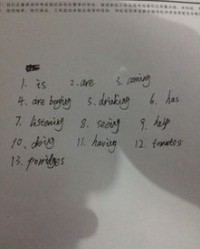 1. is 2. are 3. coming
4. are buying 5. drinking 6. has
7. listening 8. seeing 9. help
10. doing 11. having 12. tomatoes
13. porridges